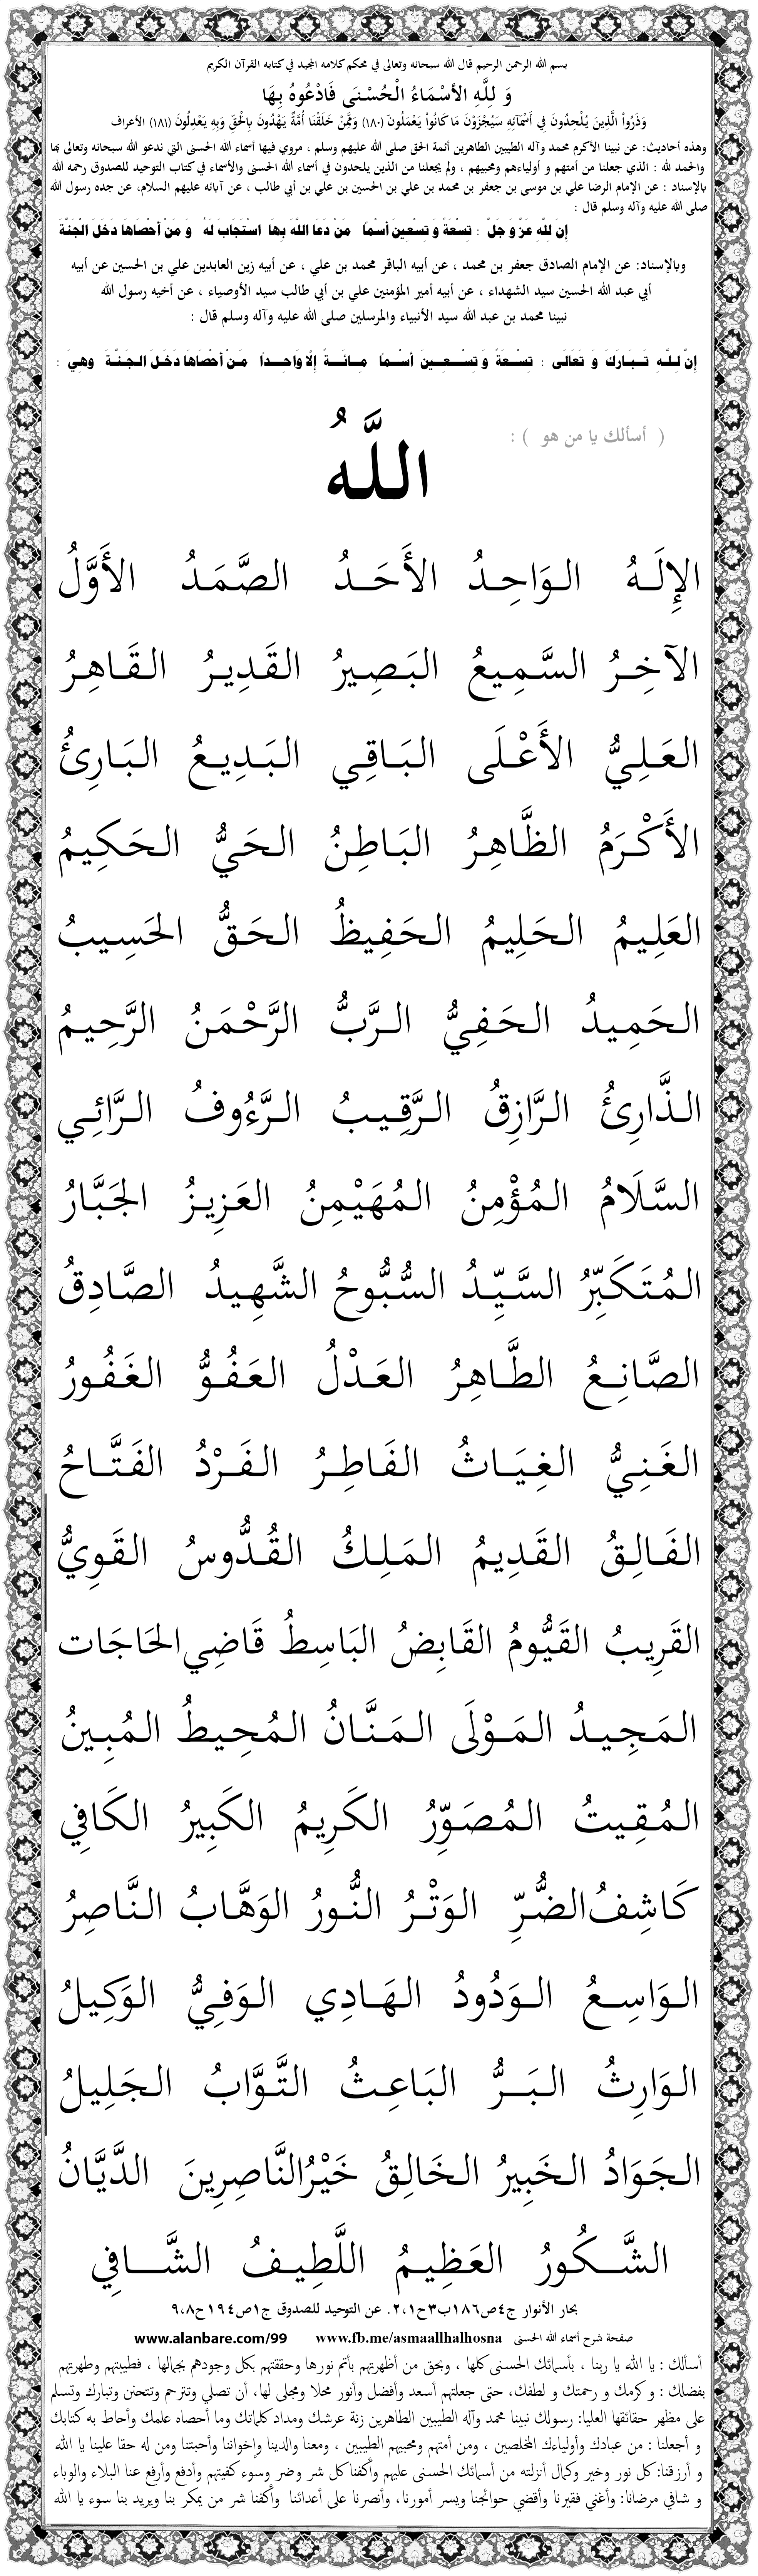 بسم الله الرحمن الرحيم قال الله سبحانه وتعالى في محكم كلامه المجيد في كتابه القرآن الكريم
وَ لِلَّهِ الأَسْمَاءُ الْحُسْنَى فَادْعُوهُ بِهَا
وَذَرُواْ الَّذِينَ يُلْحِدُونَ فِي أَسْمَآئِهِ سَيُجْزَوْنَ مَا كَانُواْ يَعْمَلُونَ (١٨٠) وَمِمَّنْ خَلَقْنَا أُمَّةٌ يَهْدُونَ بِالْحَقِّ وَبِهِ يَعْدِلُونَ (١٨١) الأعراف
وهذه أحاديث: عن نبينا الأكرم محمد وآله الطيبين الطاهرين أئمة الحق صلى الله عليهم وسلم ، مروي فيها أسماء الله الحسنى التي ندعو الله سبحانه وتعالى بها
والحمد لله : الذي جعلنا من أمتهم و أولياءهم ومحبيهم ، ولم يجعلنا من الذين يلحدون في أسماء الله الحسنى والأسماء في كتاب التوحيد للصدوق رحمه الله
بالإسناد : عن الإمام الرضا علي بن موسى بن جعفر بن محمد بن علي بن الحسين بن علي بن أبي طالب ، عن آبائه عليهم السلام، عن جده رسول الله
صلى الله عليه وآله وسلم قال :
إن لله عَزَّ وَ جَلَّ : تِسْعَةً وَ تِسْعِينَ أَسْمَاً مَنْ دَعَا اللَّهَ بِهَا اسْتَجَابَ لَهُ وَ مَنْ أَحْصَاهَا دَخَلَ الْجَنَّةَ
وبالإسناد: عن الإمام الصادق جعفر بن محمد ، عن أبيه الباقر محمد بن علي ، عن أبيه زين العابدين علي بن الحسين عن أبيه
أبي عبد الله الحسين سيد الشهداء ، عن أبيه أمير المؤمنين علي بن أبي طالب سيد الأوصياء ، عن أخيه رسول الله
نبينا محمد بن عبد الله سيد الأنبياء والمرسلين صلى الله عليه وآله وسلم قال :
إِنَّ لِلَّهِ تَبَارَكَ وَ تَعَالَى : تِسْعَةً وَ تِسْعِينَ أَسْمَاً مِائَةً إِلَّا وَاحِداً مَنْ أَحْصَاهَا دَخَلَ الجَنَّةَ وهِيَ :
( أسألك يا من هو ) :
اللَّهُ
الإِلَهُ الوَاحِدُ الأَحَدُ الصَّمَدُ الأَوَّلُ
الآخِرُ السَّمِيعُ البَصِيرُ القَدِيرُ القَاهِرُ
العَلِيُّ الأَعْلَى البَاقِي البَدِيعُ البَارِئُ
الأَكْرَمُ الظَّاهِرُ البَاطِنُ الحَيُّ الحَكِيمُ
العَلِيمُ الحَلِيمُ الحَفِيظُ الحَقُّ الحَسِيبُ
الحَمِيدُ الحَفِيُّ الرَّبُّ الرَّحْمَنُ الرَّحِيمُ
الذَّارِئُ الرَّازِقُ الرَّقِيبُ الرَّءُوفُ الرَّائِي
السَّلَامُ المُؤْمِنُ المُهَيْمِنُ العَزِيزُ الجَبَّارُ
المُتَكَبِّرُ السَّيِّدُ السُّبُّوحُ الشَّهِيدُ الصَّادِقُ
الصَّانِعُ الطَّاهِرُ العَدْلُ العَفُوُّ الغَفُورُ
الغَنِيُّ الغِيَاثُ الفَاطِرُ الفَرْدُ الفَتَّاحُ
الفَالِقُ القَدِيمُ المَلِكُ القُدُّوسُ القَوِيُّ
القَرِيبُ القَيُّومُ القَابِضُ البَاسِطُ قَاضِي الحَاجَات
المَجِيدُ المَوْلَى المَنَّانُ المُحِيطُ المُبِينُ
المُقِيتُ المُصَوِّرُ الكَرِيمُ الكَبِيرُ الكَافِي
كَاشِفُ الضُّرِّ الوَتْرُ النُّورُ الوَهَّابُ النَّاصِرُ
الوَاسِعُ الوَدُودُ الهَادِي الوَفِيُّ الوَكِيلُ
الوَارِثُ البَرُّ البَاعِثُ التَّوَّابُ الجَلِيلُ
الجَوَادُ الخَبِيرُ الخَالِقُ خَيْرُ النَّاصِرِينَ الدَّيَّانُ
الشَّكُورُ العَظِيمُ اللَّطِيفُ الشَّافِي
بحار الأنوار ج٤ص١٨٦ب٣ح١،٢. عن التوحيد للصدوق ج١ص١٩٤ح٩،٨
صفحة شرح أسماء الله الحسنى www.fb.me/asmaallhalhosna www.alanbare.com/99
أسألك : يا الله يا ربنا ، بأسمائك الحسنى كلها ، وبحق من أظهرتهم بأتم نورها وحققتهم بكل وجودهم بجمالها ، فطيبتهم وطهرتهم
بفضلك : و كرمك و رحمتك و لطفك، حتى جعلتهم أسعد وأفضل وأنور محلا ومجلى لها، أن تصلي وتترحم وتتحنن وتبارك وتسلم
على مظهر حقائقها العليا: رسولك نبينا محمد وآله الطيبين الطاهرين زنة عرشك ومداد كلماتك وما أحصاه علمك وأحاط به كتابك
و أجعلنا : من عبادك وأولياءك المخلصين ، ومن أمتهم ومحبيهم الطيبين ، ومعنا والدينا وإخواننا وأحبتنا ومن له حقا علينا يا الله
و أرزقنا: كل نور وخير وكمال أنزلته من أسمائك الحسنى عليهم وأكفنا كل شر وضر وسوء كفيتهم وأدفع وأرفع عنا البلاء والوباء
و شافي مرضانا: وأغني فقيرنا وأقضي حوانجنا ويسر أمورنا، وأنصرنا على أعدائنا وأكفنا شر من يمكر بنا ويريد بنا سوء يا الله